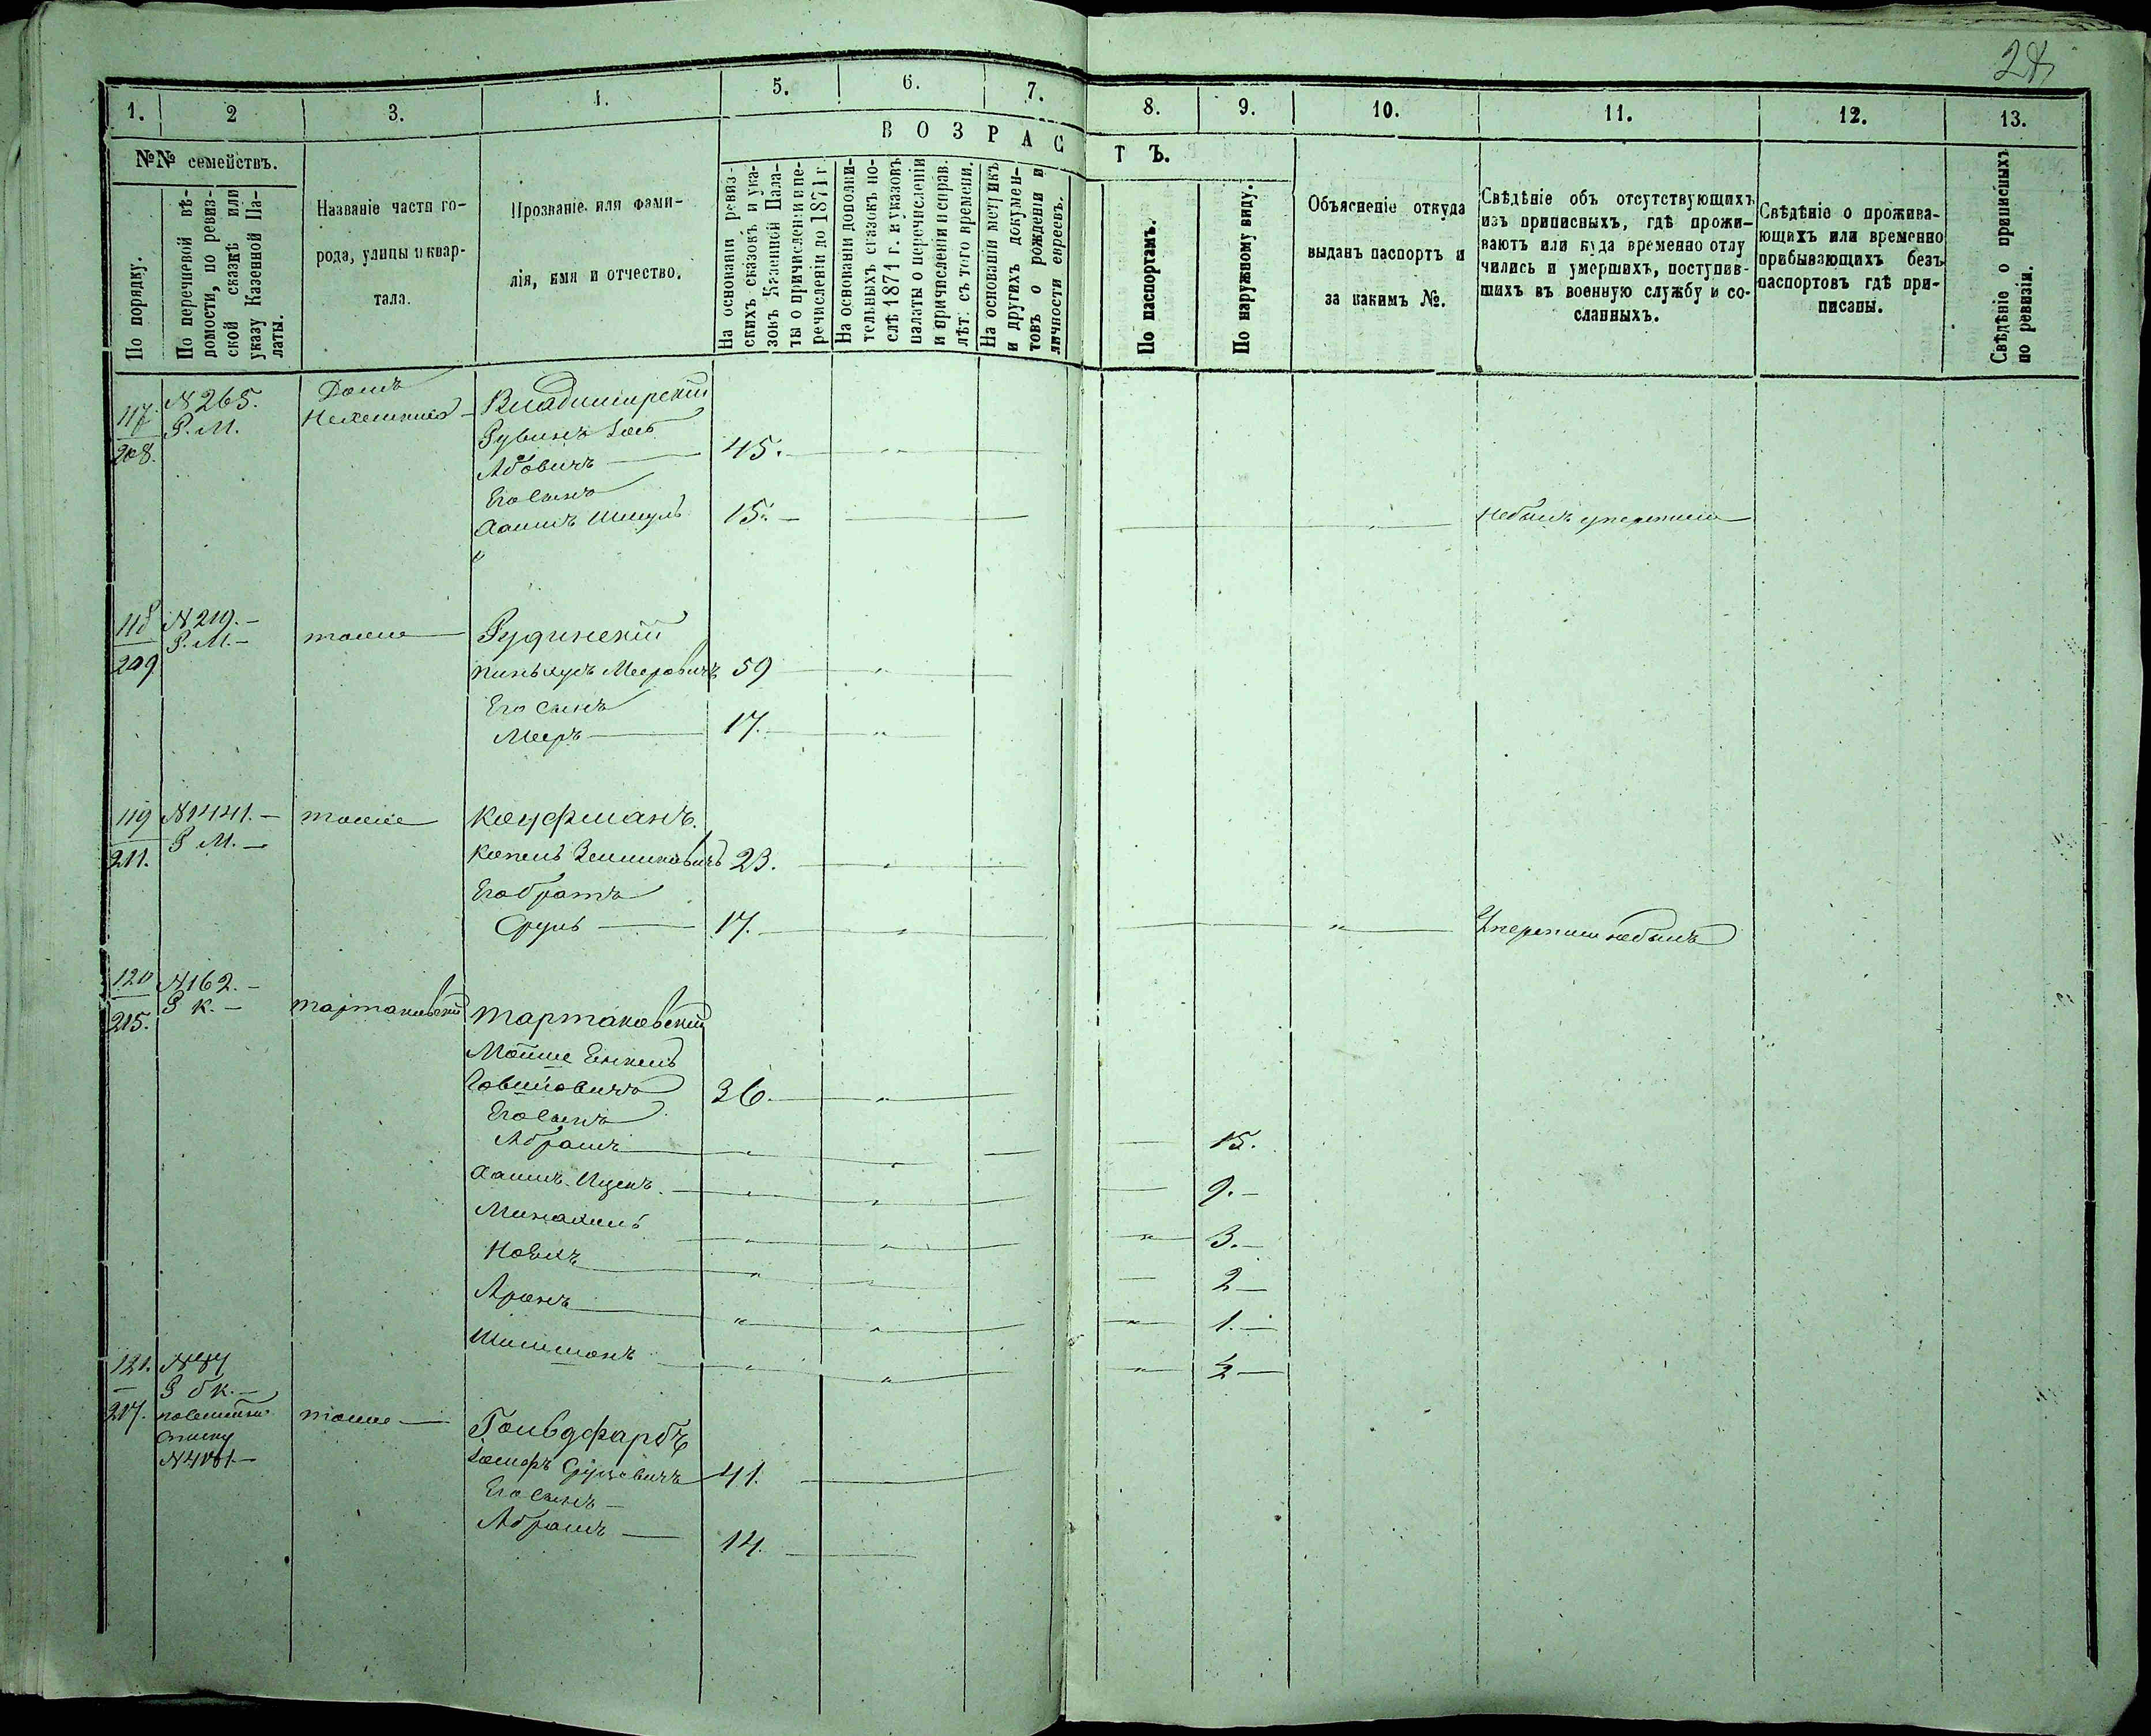 28
1. 2 3. 4. 5. 6. 7. 8. 9. 10. 11. 12. 13.
№№ семействъ.
По порядку.
По перечневой вѣ-
домости, по ревиз-
ской сказкѣ или
указу Казенной Па-
латы.
Названіе части го-
рода, улицы и квар-
тала.
Прозваніе или фами-
лія, имя и отчество.
ВОЗРАСТЪ.
На основаніи ревиз-
скихъ сказокъ и ука-
зовъ Казенной Пала-
ты о причисленіи и пе-
речисленіи до 1871 г.
На основаніи дополни-
тельныхъ сказокъ по-
слѣ 1871 г. и указовъ
палаты о перечисленіи
и причисленіи и справ.
лѣт. съ того времени.
На основаніи метрикъ
и другихъ докумен-
товъ о рожденіи и
личности евреевъ.
По паспортамъ.
По наружному виду.
Объясненіе откуда
выданъ паспортъ и
за какимъ №.
Свѣдѣніе объ отсутствующихъ
изъ приписныхъ, гдѣ прожи-
ваютъ или куда временно отлу
чились и умершихъ, поступив-
шихъ въ военную службу и со-
сланныхъ.
Свѣдѣніе о прожива-
ющихъ или временно
прибывающихъ безъ
паспортовъ гдѣ при-
писаны.
Свѣдѣніе о приписныхъ
по ревизіи.
117. 208. N 265. Р. М. Домъ
Владимирскій
Рувинъ Іось
Абовичъ 45.
Его Сынъ
Хаимъ Шмуль 15. Небылъ упереписи
"
118 209 N 219. Р. М. тоже Рудинскій
Пинькусъ Мееровичъ 59
Его сынъ
Мееръ 17.
119 211. N 1441. Р М. тоже Кауфманъ.
Копель Зельмиковичъ 23.
Его братъ
Сруль 17. Упереписи небылъ
120 215. N 162. Р К. Тартаковскій Тартаковскій
Мойше Енкель
36.
Его Сынъ
Абрамъ 15.
Хаимъ Ицекъ 9.
Минахимъ 3.
Новихъ 2
Аронъ 1.
Шимшонъ ½
121. 217. Р б К. N 4061. тоже Гольдфарбъ
Іосифъ Сруловичъ 41.
Его Сынъ
Абрамъ 14.